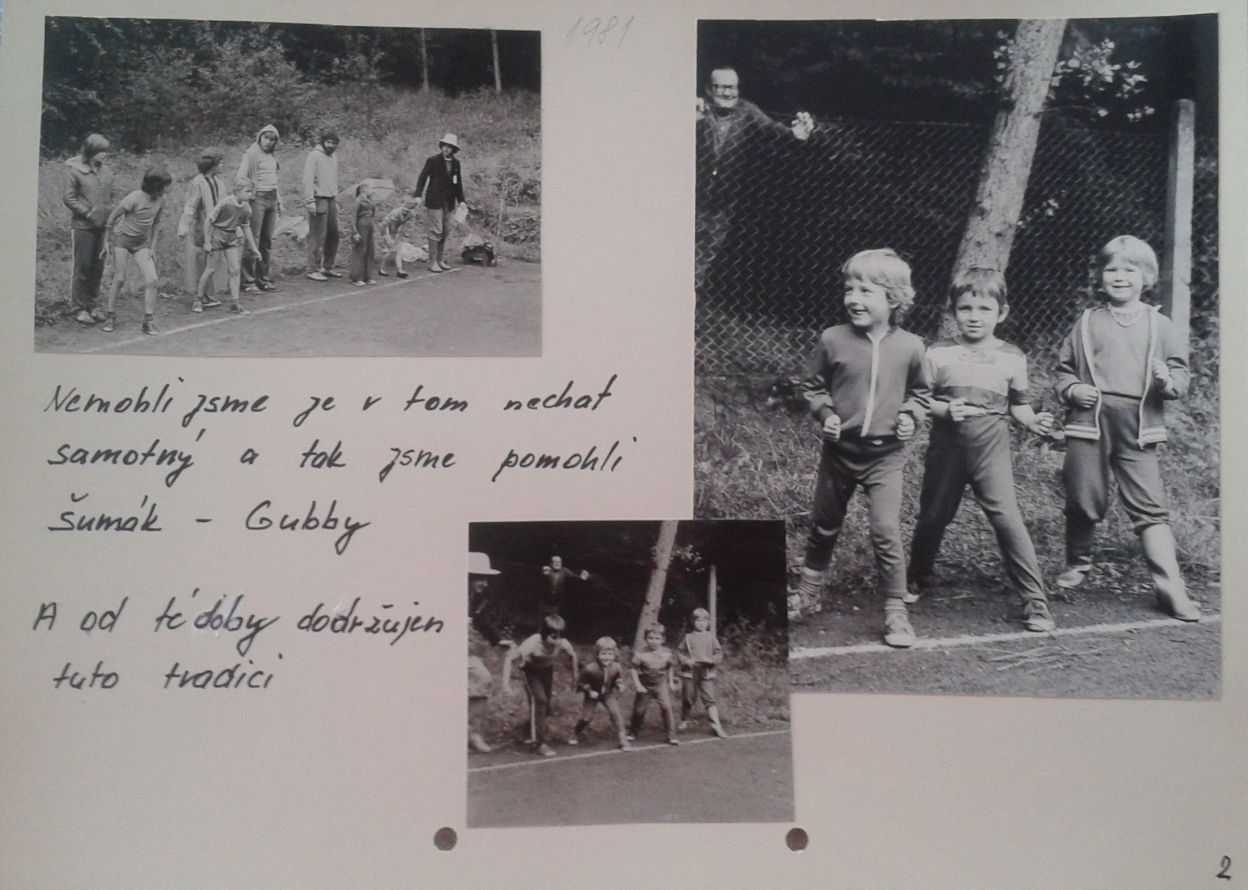 1981
Nemohli jsme je v tom nechat
samotný a tak jsme pomohli
Šumák - Gubby
A od té doby dodržujem
tuto tradici
2